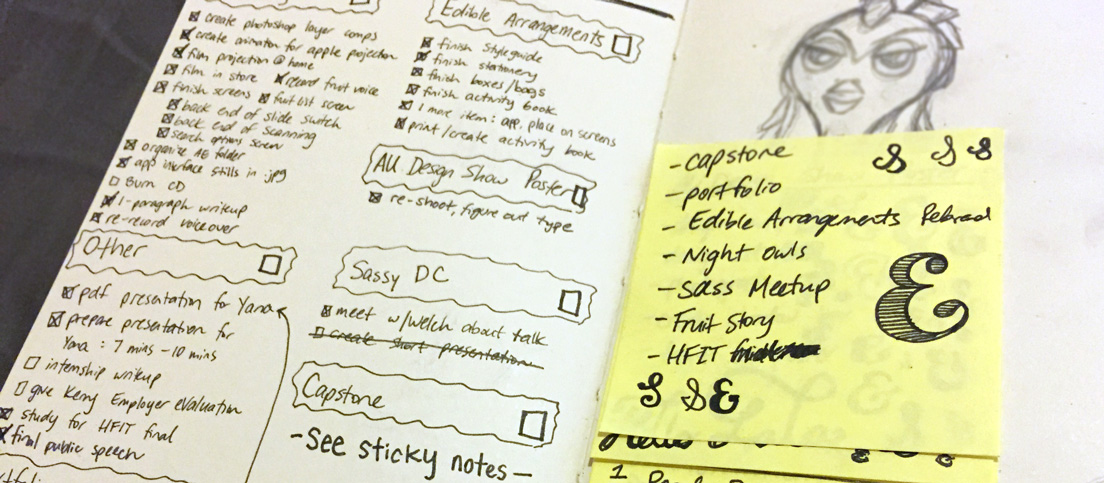 create photoshop layer comps
create animation for apple projection
film projection @ home
film in store record fruit voice
finish screens fruit list screen
back end of slide switch
back end of scanning
search options screen
organize AE folder
app interface stills in .jpg
Burn CD
1-paragraph writeup
re-record voiceover
Other
pdf presentation for Yana
prepare presentation for
Yana : 7 mins - 10 mins
internship writeup
give Keny Employer evaluation
study for HFIT final
final public speech
Edible Arrangements
finish styleguide
finish stationery
finish boxes/bags
finish activity book
1 more item: app, place on screens
print/create activity book
AU Design Show Poster
re-shoot, figure out type
Sassy DC
meet w/Welch about talk
create short presentation
Capstone
-See sticky notes-
-capstone
-portfolio
- Edible Arrangements Rebrand
- Night Owls
- Sass Meetup
- Fruit Story
- HFIT
S S S
&
S S &
1